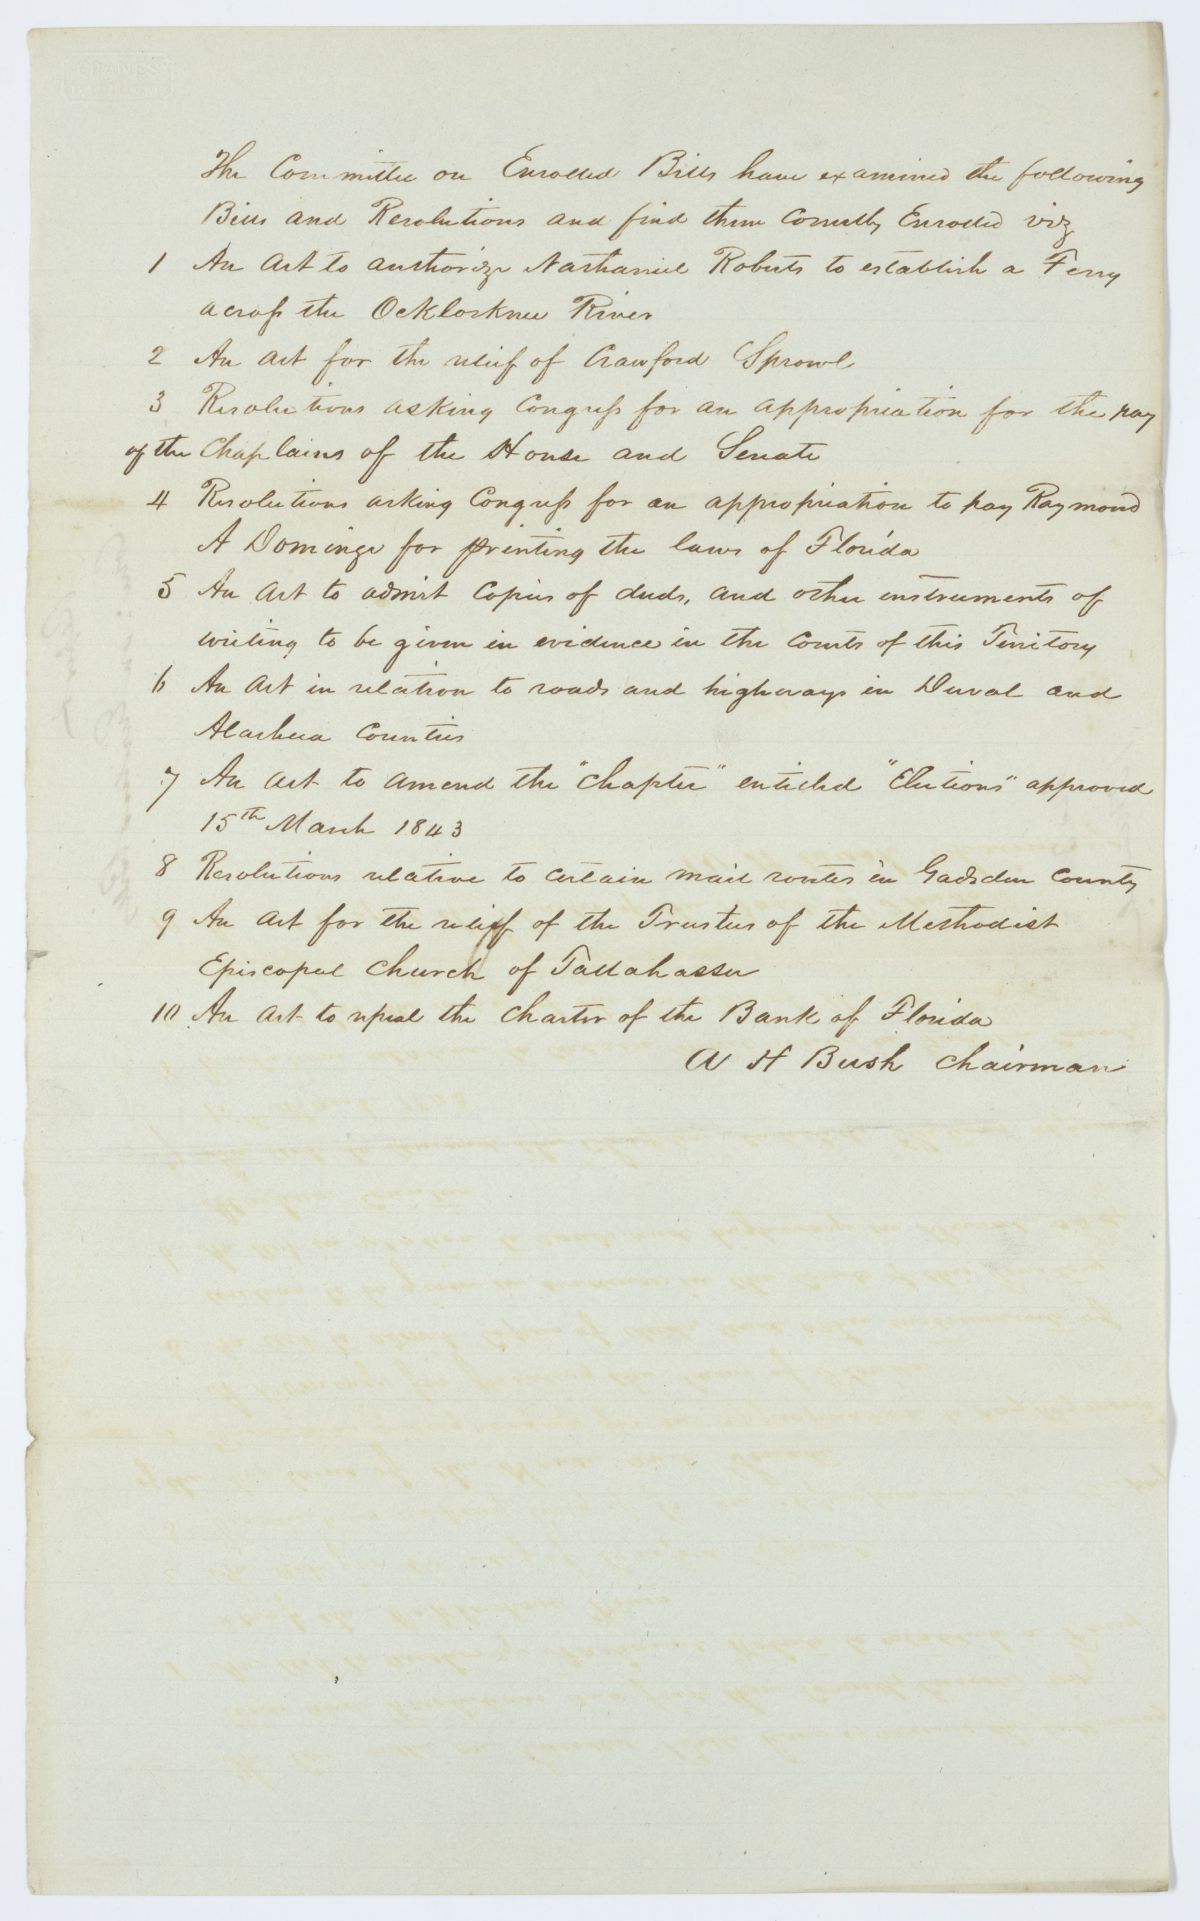 The Committee on Enrolled Bills have examined the following
Bills and Resolutions and find them Correctly Enrolled viz
1 An Act to authorize Nathaniel Roberts to establish a Ferry
across the Ocklocknee River
2 An Act for the relief of Crawford Sprowl
3 Resolutions asking Congress for an appropriation for the pay
of the Chaplains of the House and Senate
4 Resolutions asking Congress for an appropriation to pay Raymond
A Domingo for printing the laws of Florida
5 An Act to admit Copies of deeds, and other instruments of
writing to be given in evidence in the Courts of this Territory
6 An Act in relation to roads and highways in Duval and
Alachua Counties
7 An act to amend the "Chapter" entitled "Elections" approved
15th March 1843
8 Resolutions relative to certain mail routes in Gadsden County
9 An Act for the relief of the Trustees of the Methodist
Episcopal Church of Tallahassee
10 An Act to repeal the Charter of the Bank of Florida
A H Bush Chairman